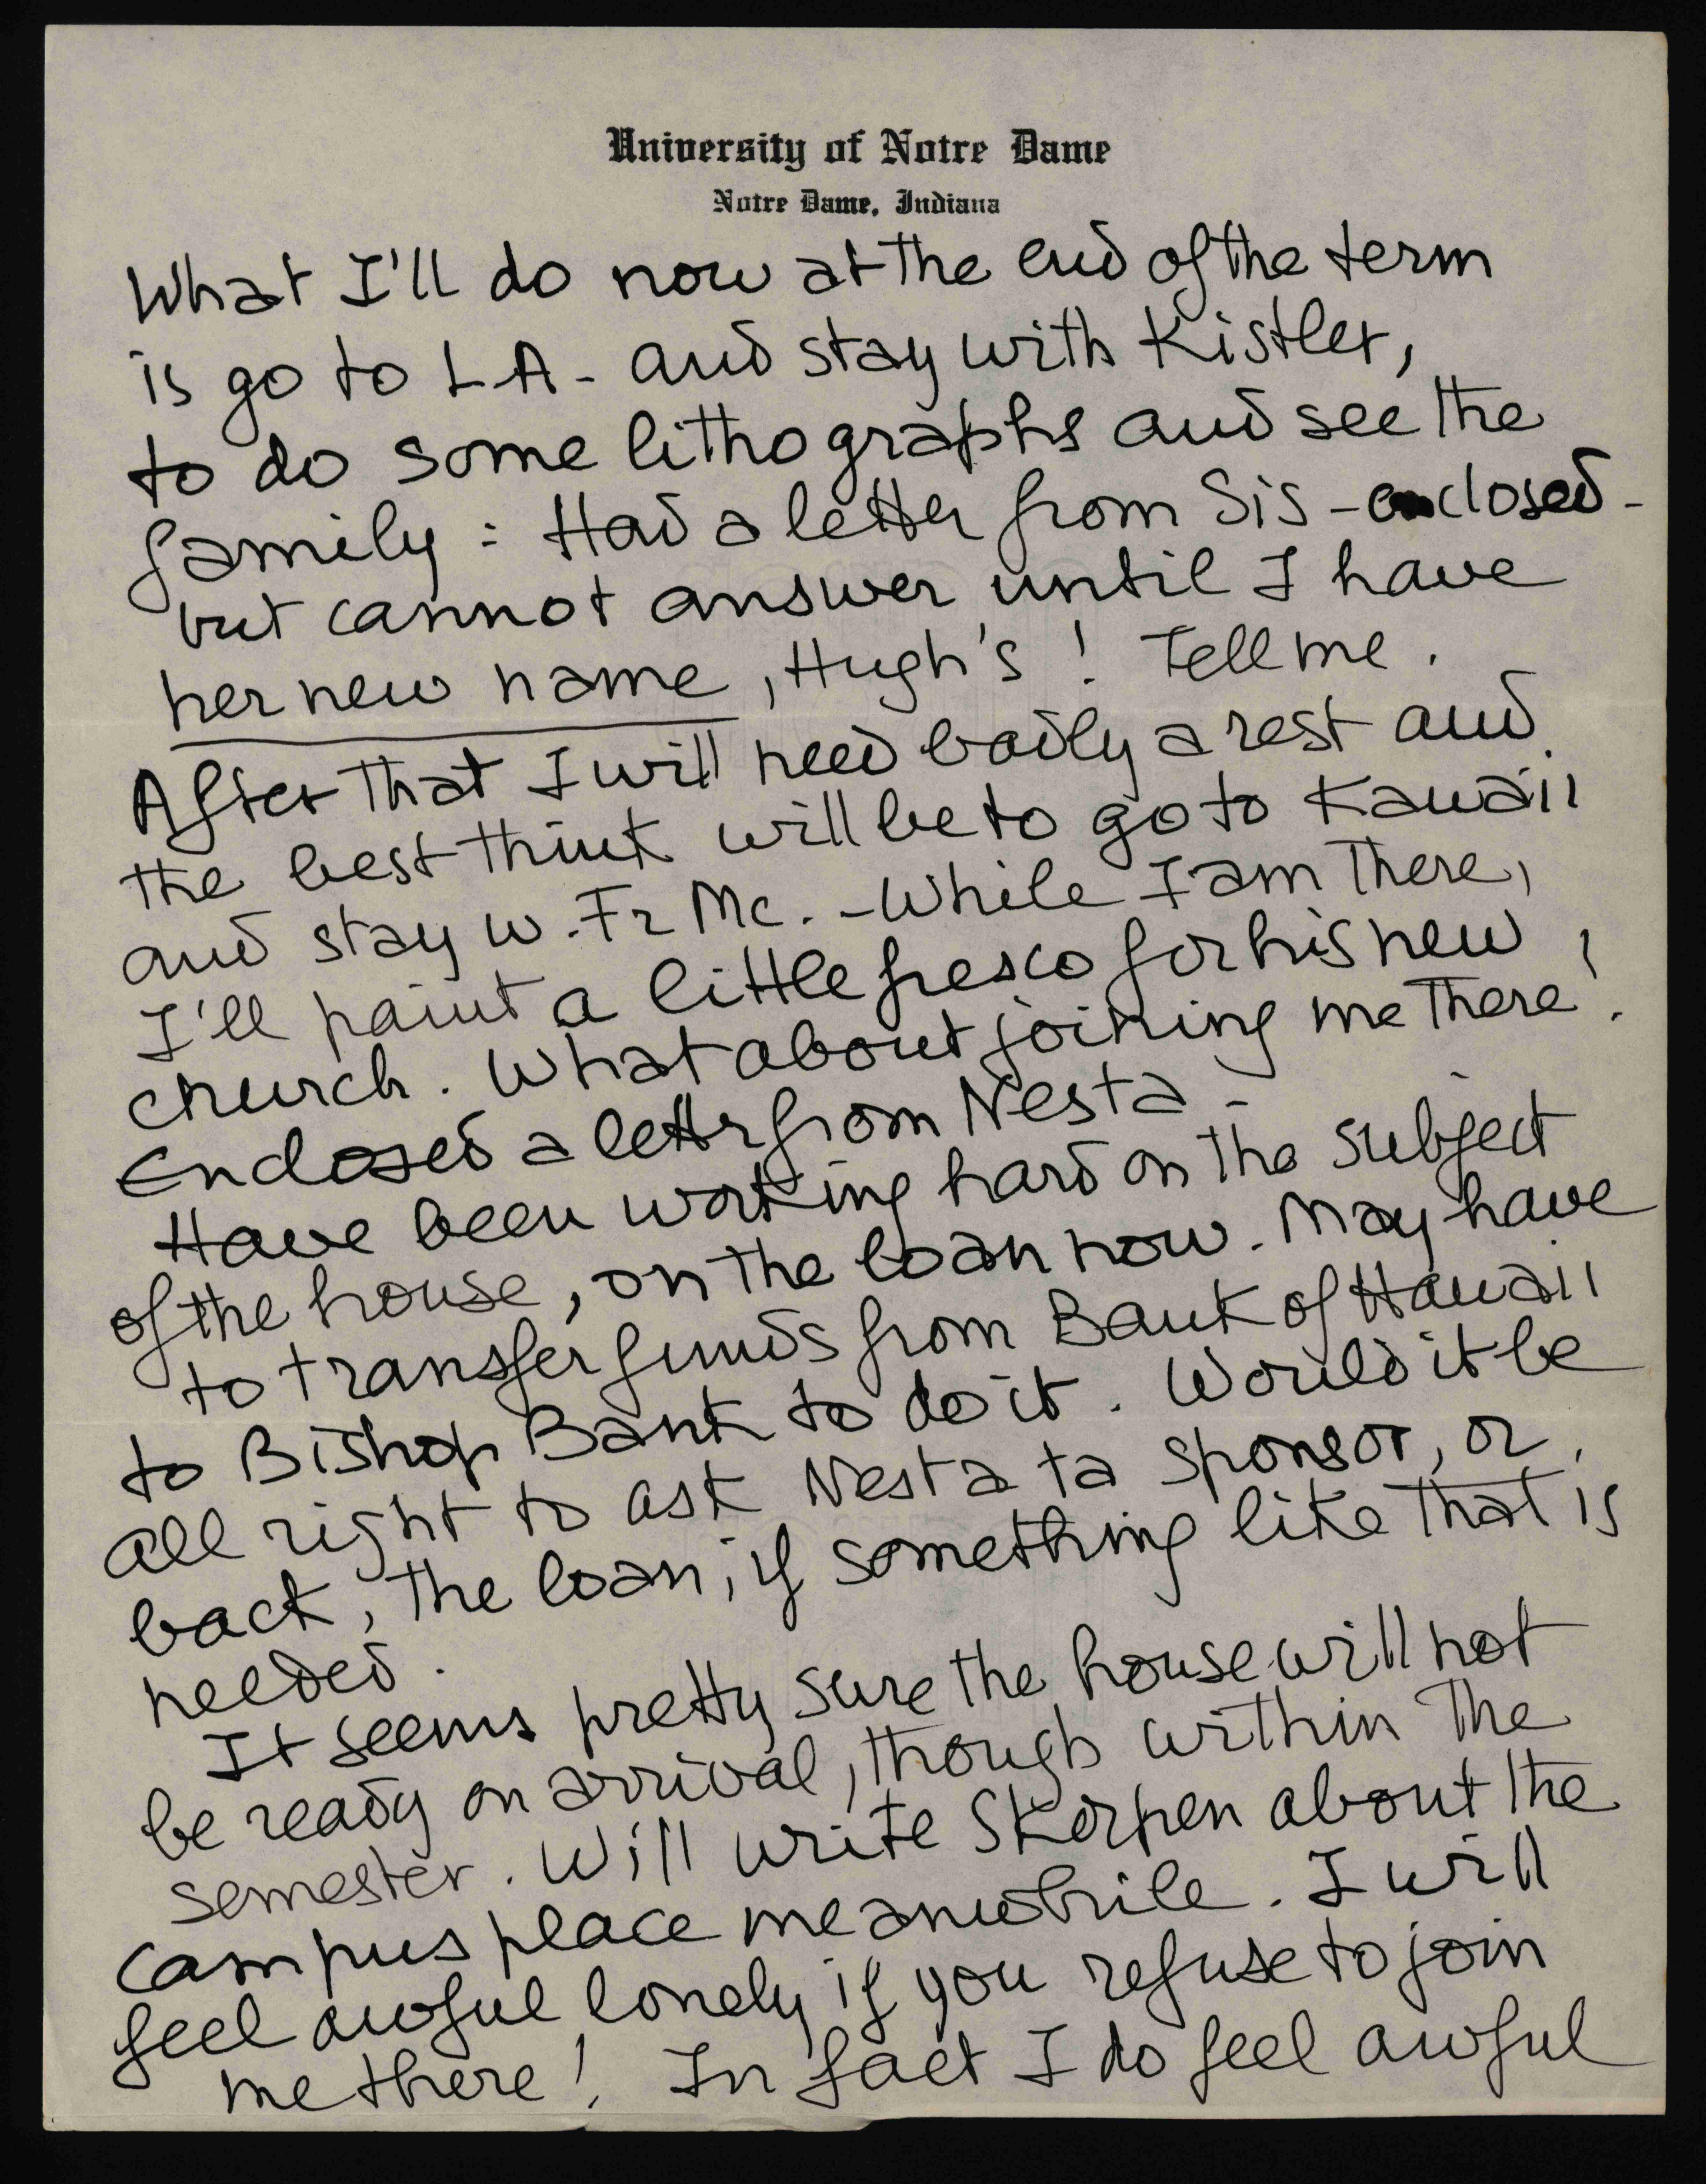 University of Notre Dame
Notre Dame, Indiana
What I'll do now at the end of the term
is go to L.A. and stay with Kistler,
to do some lithographs and see the
family : Had a letter from Sis - enclosed -
but cannot answer until I have
her new name, Hugh's ! Tell me .
After that I will need badly a rest and
the best think will be to go to Kawaii
and stay w. Fr Mc. - While I am there,
I'll paint a little fresco for his new
church . What about joining me there !
Enclosed a letter from Nesta -
Have been working hard on the subject
of the house, on the loan now. May have
to transfer funds from Bank of Hawaii
to Bishop Bank to do it . Would it be
all right to ask Nesta ta sponsor, or
back, the loan, if something like that is
needed .
It seems pretty sure the house will not
be ready on arrival, though within the
semester . Will write Skorpen about the
campus place meanwhile . I will
feel awful lonely if you refuse to join
me there ! In fact I do feel awful